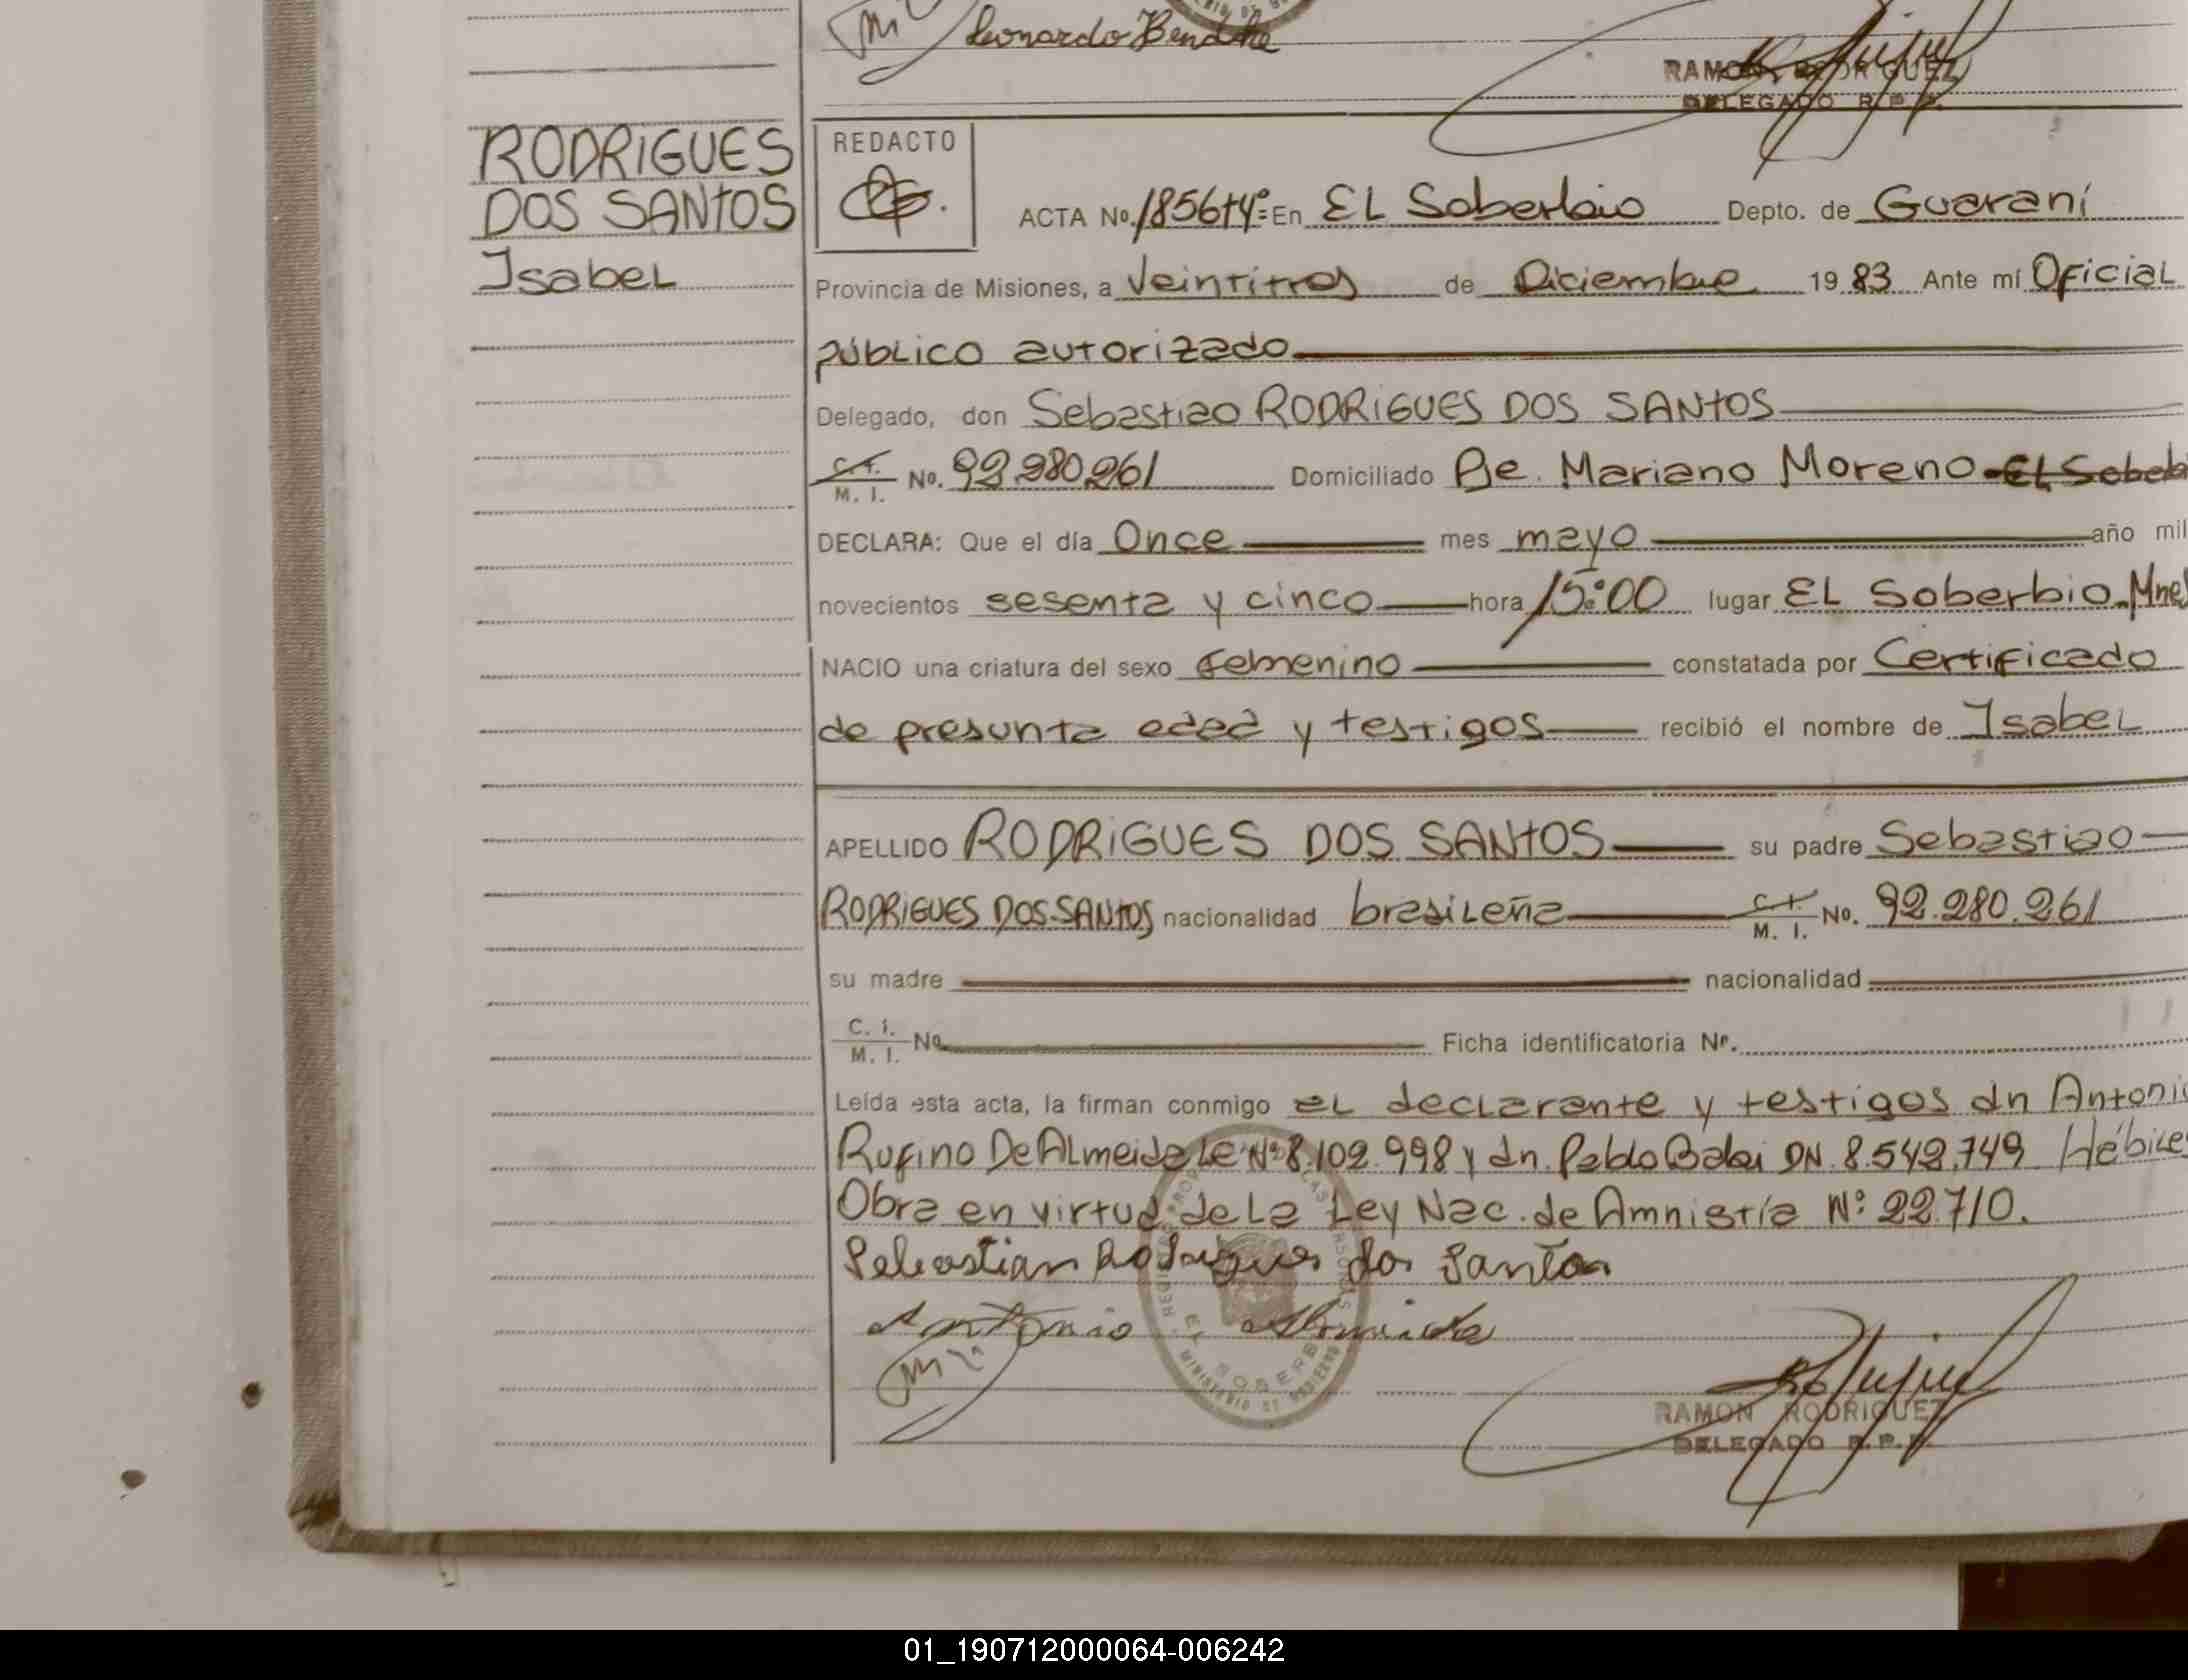 Leonardo
RAMON RODRIGUEZ
DELEGADO R.P.P.
RODRIGUES
DOS SANTOS
Isabel
REDACTO
ACTA No. 1856 tyº= En EL Soberbio Depto. de Guaraní
Provincia de Misiones, a Veintitres de Diciembre 19 83 Ante mí Oficial
público autorizado
Delegado, don Sebastiao RODRIGUES DOS SANTOS
C.I. M. I. No. 92.280.261 Domiciliado Be. Mariano Moreno EL Soberbi
DECLARA: Que el día Once mes mayo año mil
novecientos sesenta y cinco hora 15:00 lugar EL Soberbio Mnes
NACIO una criatura del sexo femenino constatada por Certificado
de presunta edad y testigos recibió el nombre de Isabel
APELLIDO RODRIGUES DOS SANTOS su padre Sebastiao
RODRIGUES DOS SANTOS nacionalidad brasileña C.I. M. I. No. 92.280.261
su madre nacionalidad
C. I. M. I. No. Ficha identificatoria Nº.
Leída esta acta, la firman conmigo el declarante y testigos dn Antonio
Rufino De Almeida LE Nº 8.102.998 y dn. Pablo DN. 8.542.749 Hábiles
Obra en virtud de La Ley Nac. de Amnistía Nº 22.710.
Sebastian Rodrigues dos Santos
Antonio Almeida
REGISTRO PROV. DE LAS PERSONAS
EL SOBERBIO
MINISTERIO DE GOBIERNO
RAMON RODRIGUEZ
DELEGADO R.P.P.
01_190712000064-006242